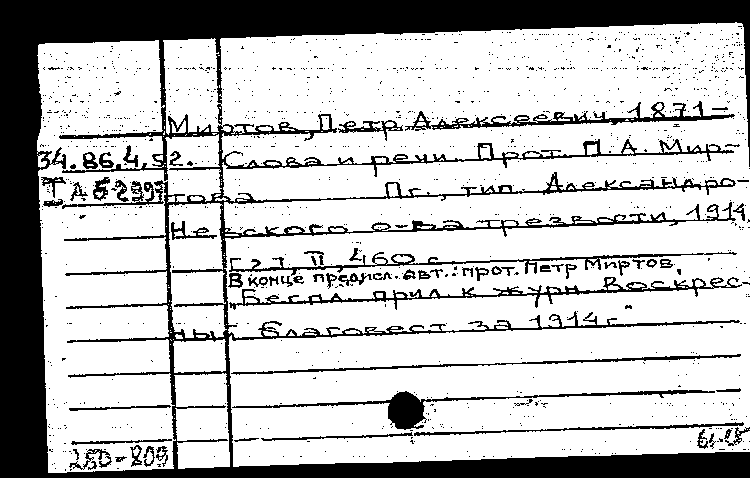 Миртов, Петр Алексеевич, 1871-
34.86.4.52. Слова и речи. Прот. П. А. Мир-
това Пг., тип. Александро-
Невского о-ва трезвости, 1914
II, 460 с.
В конце предисл. авт.: прот. Петр Миртов.
"Беспл. прил. к журн. Воскрес-
ный благовест за 1914 г."
250-809